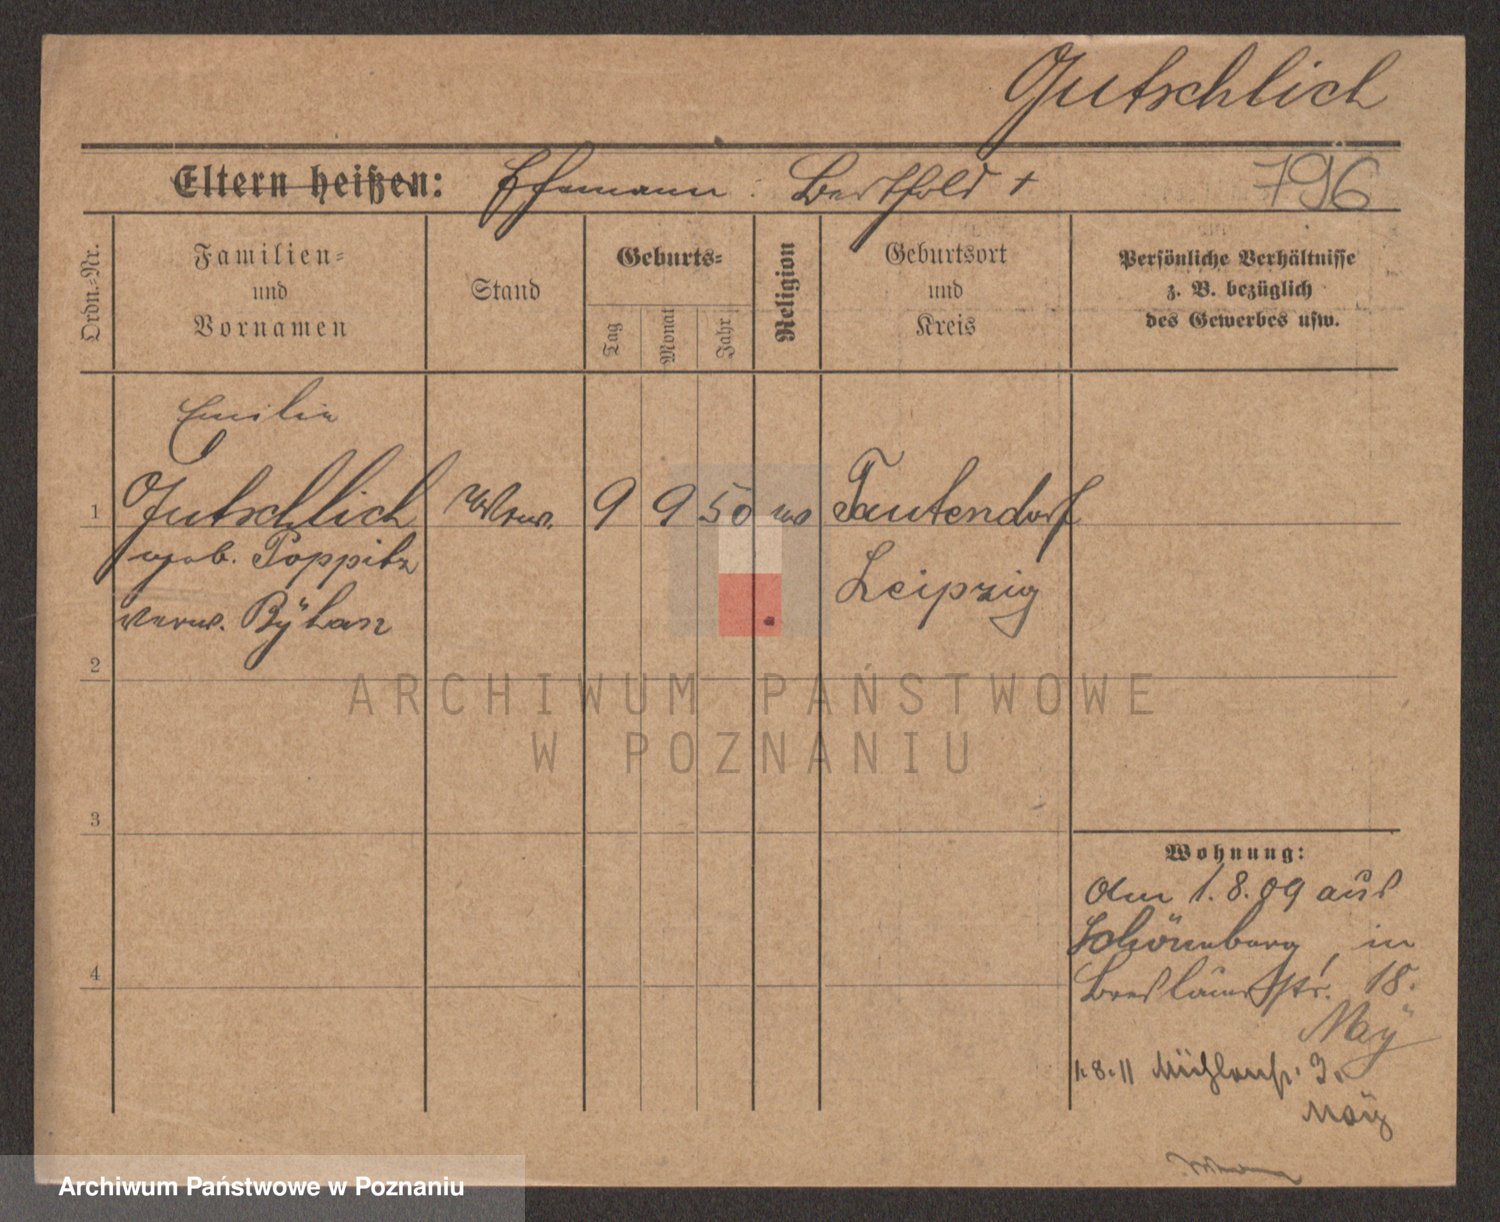 Gutschlich
Eltern heißen: Ehemann: Berthold +
796
Ordn.-Nr.
Familien-
und
Vornamen
Stand
Geburts-
Tag
Monat
Jahr
Religion
Geburtsort
und
Kreis
Persönliche Verhältnisse
z. B. bezüglich
des Gewerbes usw.
Emilie
1 Gutschlich Wwe. 9 9 50 ev Tautendorf
geb. Poppitz Leipzig
verw. Bÿhan
2
ARCHIWUM PAŃSTWOWE
W POZNANIU
3
Wohnung:
Am 1.8.09 aus
Schöneberg, in
Breslauerstr. 18.
Maÿ
4
1.8.11 Mühlenstr. 3.
Maÿ
Archiwum Państwowe w Poznaniu